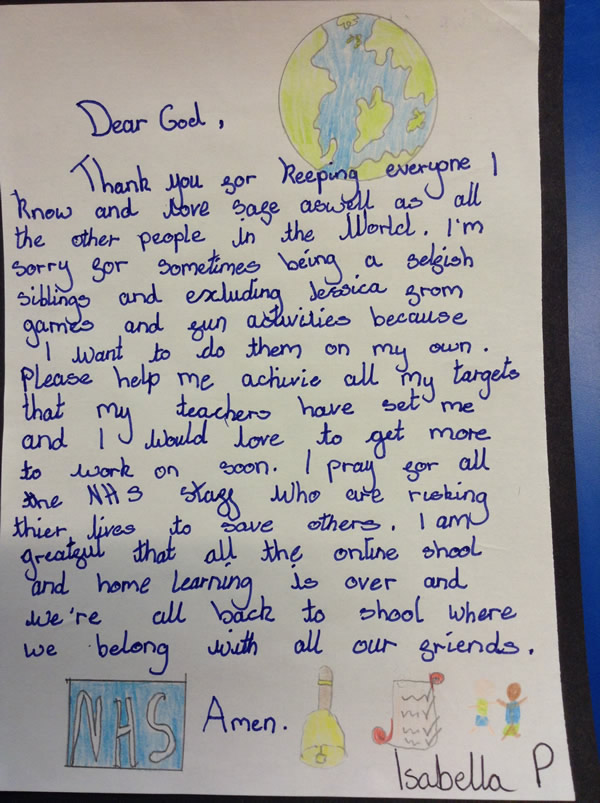 Dear God,
Thank you for keeping everyone I
know and love safe aswell as all
the other people in the World. I'm
sorry for sometimes being a selfish
siblings and excluding Jessica from
games and fun activities because
I want to do them on my own.
Please help me achivie all my targets
that my teachers have set me
and I would love to get more
to work on soon. I pray for all
the NHS staff who are risking
thier lives to save others. I am
greatful that all the online shool
and home learning is over and
we're all back to shool where
we belong with all our friends.
NHS Amen.
Isabella P